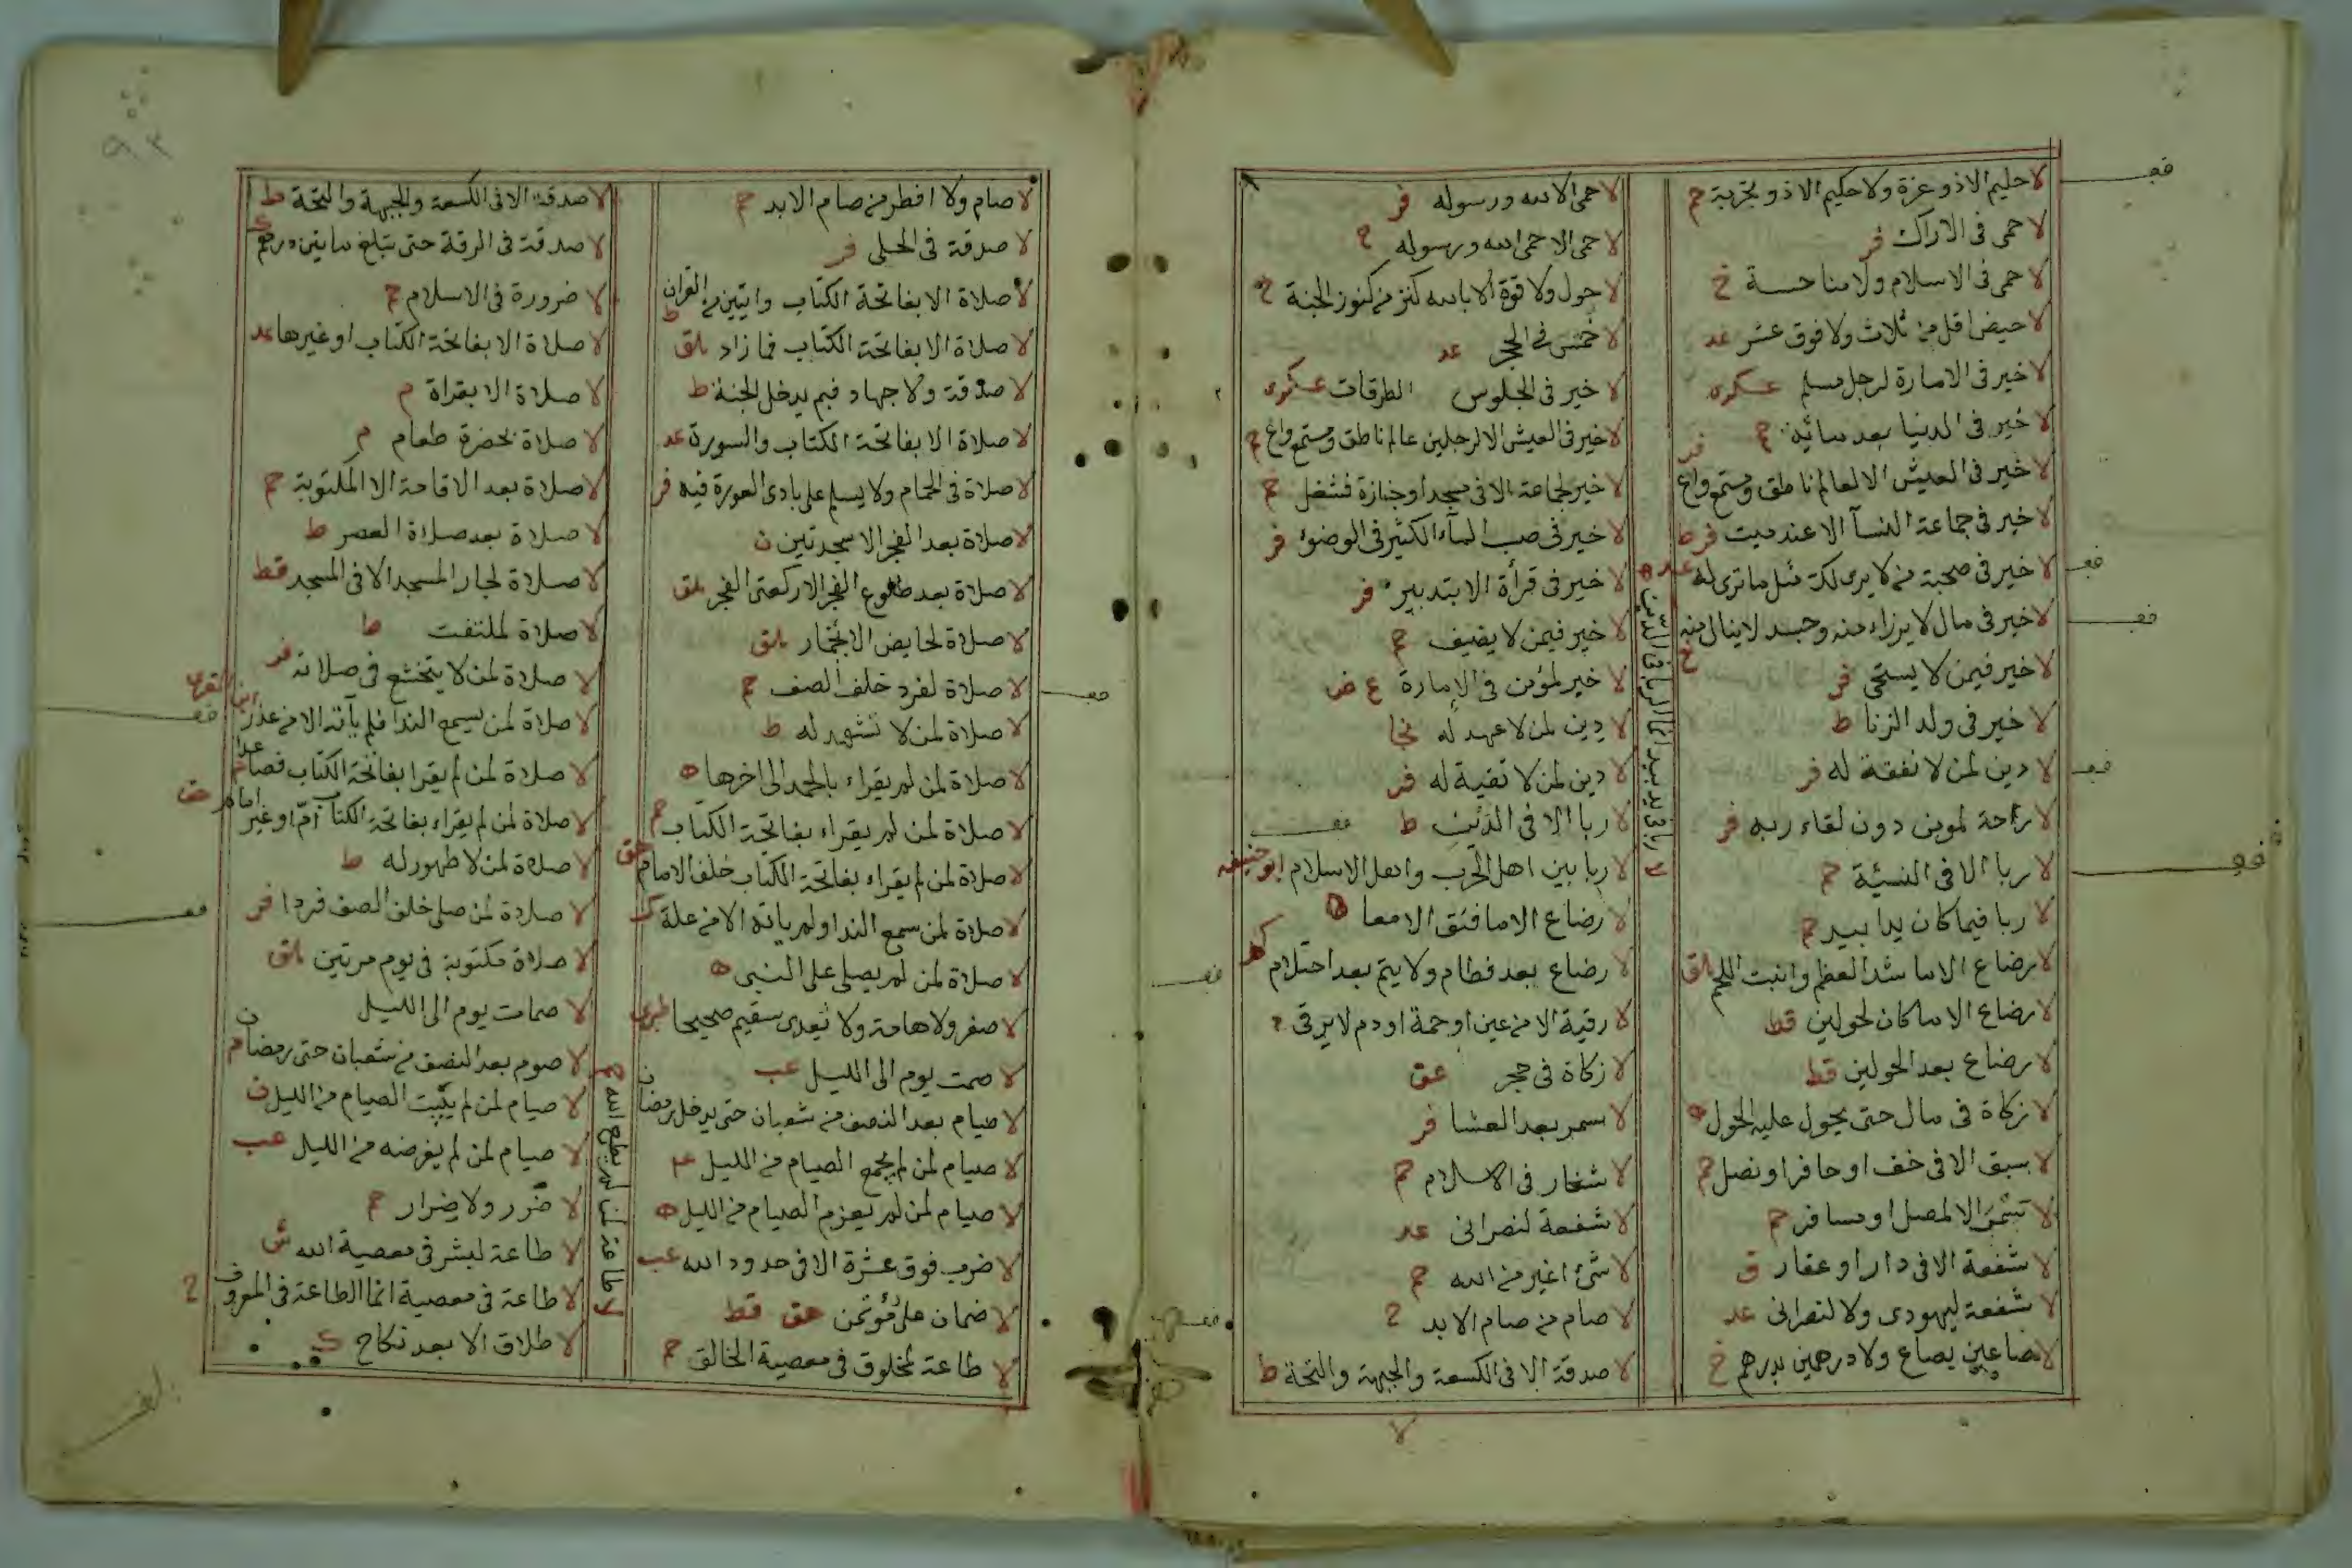 لا حليم الا ذو عزة ولا حكيم الا ذو تجربة حم
لا حمى في الاراك فر
لا حمى في الاسلام ولا مناحسة خ
لا حيض اقل من ثلاث ولا فوق عشر عد
لا خير في الامارة لرجل مسلم عسكرى
لا خير في الدنيا بعد مائة حم
لا خير في العيش الا لعالم ناطق ومستمع واع فر
لا خير في جماعة النسآ الا عند ميت فر ط
لا خير في صحبة من لا يرى لك مثل ما ترى له عد
لا خير في مال لا يرزاء منه وجسد لا ينال منه
لا خير فيمن لا يستحى فر
لا خير في ولد الزنا ط
لا دين لمن لا نفقة له فر
لا راحة لمومن دون لقاء ربه فر
لا ربا الا في النسئة حم
لا ربا فيما كان يدا بيد حم
لا رضاع الا ما شد العظم وانبت اللحم
لا رضاع الا ما كان لحولين قط
لا رضاع بعد الحولين قط
لا زكاة في مال حتى يحول عليه الحول ه
لا سبق الا في خف او حافر او نصل حم
لا الا لمصل او مسافر حم
لا شفعة الا في دار او عقار ق
لا شفعة ليهودى ولا لنصرانى عد
لا صاعين بصاع ولا درهمين بدرهم خ
لا حمى الا لله ورسوله فر
لا حمى الا حمى الله ورسوله
لا حول ولا قوة الا بالله كنز من كنوز الجنة خ
لا في الحجر عد
لا خير في الجلوس الطرقات عسكرى
لا خير في العيش الا لرجلين عالم ناطق ومستمع واع
لا خير لجماعة الا في مسجد او جنازة حم
لا خير في صب المآء الكثير في الوضوء فر
لا خير في قرأة الا بتدبير فر
لا خير فيمن لا يضيف حم
لا خير لمؤمن في الامارة ع ض
لا دين لمن لا عهد له نجا
لا دين لمن لا تقية له فر
لا ربا الا في الدين ط
لا ربا بين اهل الحرب واهل الاسلام ابو حنيفه
لا رضاع الا ما فتق الامعا ه
لا رضاع بعد فطام ولا يتم بعد احتلام
لا رقية الا من عين او حمة او دم لا يرقى
لا زكاة في حجر عق
لا سمر بعد العشا فر
لا شغار في الاسلام حم
لا شفعة لنصرانى عد
لا شئ اغير من الله حم
لا صام من صام الابد
لا صدقة الا في الكسعة والجبهة والنخة ط
لا ربا فى يد بيد انما الربا فى الدين ه
لا
لا صام ولا افطر من صام الابد حم
لا صدقة في الحلى فر
لا صلاة الا بفاتحة الكتاب وايتين من القران ط
لا صلاة الا بفاتحة الكتاب فما زاد
لا صدقة ولا جهاد فبم يدخل الجنة ط
لا صلاة الا بفاتحة الكتاب والسورة عد
لا صلاة في الحمام ولا يسلم على بادى العورة فيه فر
لا صلاة بعد الفجر الا سجدتين ن
لا صلاة بعد طلوع الفجر الا ركعتى الفجر
لا صلاة لحايض الا بخمار
لا صلاة لفرد خلف الصف حم
لا صلاة لمن لا تشهد له ط
لا صلاة لمن لم يقراء بالحمد الى اخرها ه
لا صلاة لمن لم يقراء بفاتحة الكتاب حم
لا صلاة لمن لم يقراء بفاتحة الكتاب خلف الامام
لا صلاة لمن سمع الندا ولم ياته الا من علة ك
لا صلاة لمن لم يصلى على النبى ه
لا صفر ولا هامة ولا يعدى سقيم صحيحا طبرى
لا صمت يوم الى الليل عب
لا صيام بعد النصف من شعبان حتى يدخل رمضان
لا صيام لمن لم يجمع الصيام من الليل
لا صيام لمن لم يعزم الصيام من الليل ه
لا ضرب فوق عشرة الا في حدود الله عب
لا ضمان على مؤتمن هق قط
لا طاعة لمخلوق في معصية الخالق حم
لا صدقة الا في الكسعة والجبهة والنخة ط
لا صدقة في الرقة حتى تبلغ مايتين درهم
لا ضرورة في الاسلام حم
لا صلاة الا بفاتحة الكتاب او غيرها عد
لا صلاة الا بقراة م
لا صلاة بحضرة طعام م
لا صلاة بعد الاقامة الا المكتوبة حم
لا صلاة بعد صلاة العصر ط
لا صلاة لجار المسجد الا في المسجد قط
لا صلاة لملتفت ط
لا صلاة لمن لا يتخشع في صلاته فر
لا صلاة لمن يسمع الندا فلم يأته الا من عذر
لا صلاة لمن لم يقرا بفاتحة الكتاب فصاعدا
لا صلاة لمن لم يقراء بفاتحة الكتاب امام او غير امام هق
لا صلاة لمن لا طهور له ط
لا صلاة لمن صلى خلف الصف فردا فر
لا صلاة مكتوبة في يوم مرتين
لا صمات يوم الى الليل
لا صوم بعد النصف من شعبان حتى رمضان
لا صيام لمن لم يبيت الصيام من الليل ن
لا صيام لمن لم يفرضه من الليل عب
لا ضرر ولا ضرار حم
لا طاعة لبشر في معصية الله ش
لا طاعة في معصية انما الطاعة في المعروف
لا طلاق الا بعد نكاح ك
لا طاعة لمن لم يطع الله حم
٩٣